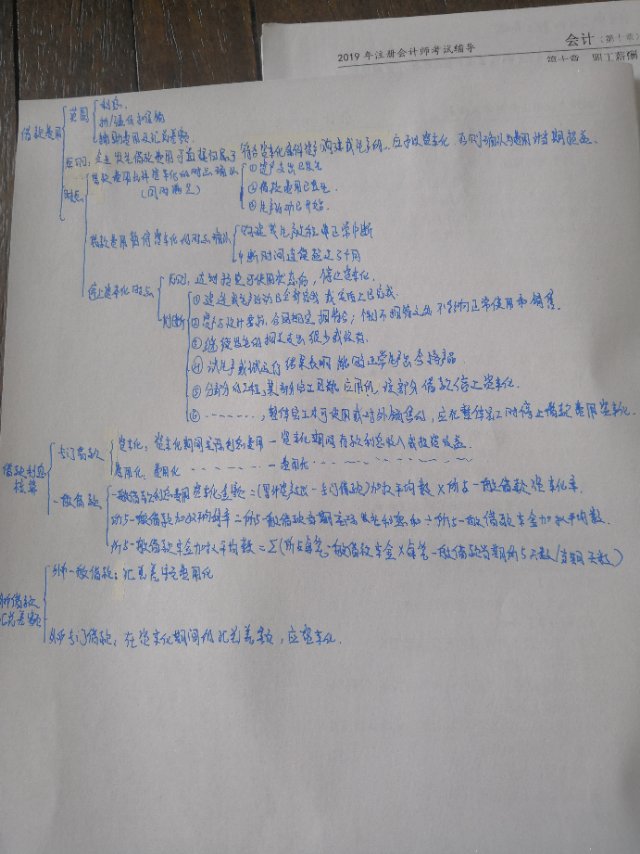 会计（第十章）
2019 年注册会计师考试辅导
第十章 职工薪酬
借款费用
范围
利息
折/溢价的摊销
辅助费用及汇兑差额
原则：企业发生借款费用可直接归属于符合资本化条件资产购建或生产的，应予以资本化 否则确认为费用计当期损益
时点
借款费用开始资本化的时点确认（同时满足）
①资产支出已发生
②借款费用已发生
③生产活动已开始
借款费用暂停资本化的时点确认
购建或生产发生非正常中断
中断时间连续超过3个月
停止资本化时点
原则：达到预定可使用状态后，停止资本化。
判断
①建造或生产活动已全部完成或实质上已完成
②资产与设计要求、合同规定相符合；个别不相符之处不影响正常使用和销售
③继续发生的相关支出很少或没有
④试生产或试运行结果表明能够正常生产出合格产品
⑤分部分的工程，某部分完工且能应用的，该部分借款停止资本化
⑥………，整体完工才可使用或对外销售的，应在整体完工时停止借款费用资本化
借款利息核算
专门借款
资本化：资本化期间实际利息费用－资本化期间存款利息收入或投资收益
费用化：费用化 － 费用化
一般借款
一般借款利息费用资本化金额＝（累计资产支出－专门借款）加权平均数×所占一般借款资本化率
所占一般借款加权平均利率＝所占一般借款当期实际发生利息和÷所占一般借款本金加权平均数
所占一般借款本金加权平均数＝Σ（所占每笔一般借款本金×每笔一般借款当期所占天数/当期天数）
外币借款汇兑差额
外币一般借款：汇兑差额费用化
外币专门借款：在资本化期间的汇兑差额，应资本化.